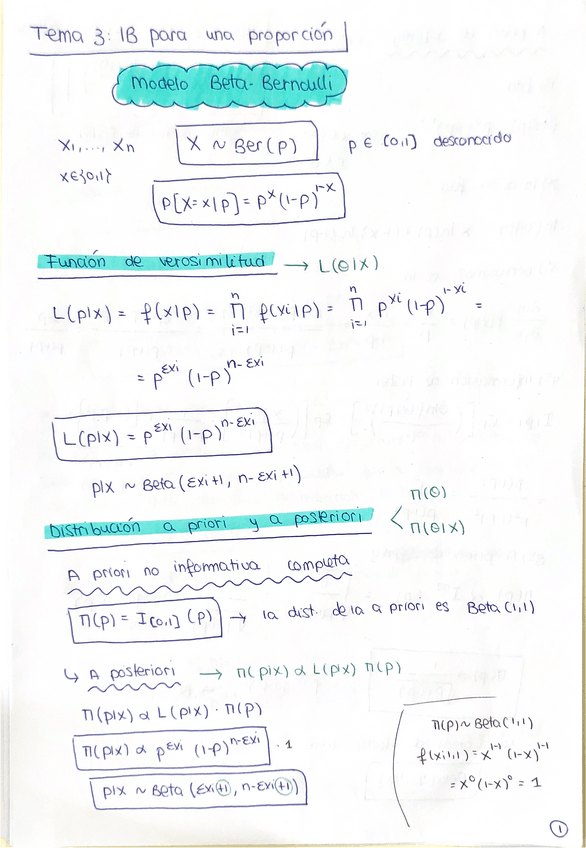 Tema 3: IB para una proporción
Modelo Beta-Bernoulli
X₁,..., Xn X ~ Ber(p) p ∈ [0,1] desconocido
x∈{0,1}
P[X=x|p] = pˣ(1-p)¹⁻ˣ
Función de verosimilitud → L(θ|x)
L(p|x) = f(x|p) = ∏ᵢ₌₁ⁿ f(xi|p) = ∏ᵢ₌₁ⁿ p^{xi} (1-p)^{1-xi} =
= p^{Σxi} (1-p)^{n-Σxi}
L(p|x) = p^{Σxi} (1-p)^{n-Σxi}
p|x ~ Beta(Σxi+1, n-Σxi+1)
Distribución a priori y a posteriori < π(θ)
π(θ|x)
A priori no informativa completa
π(p) = I[0,1] (p) → la dist. de la a priori es Beta(1,1)
↳ A posteriori → π(p|x) ∝ L(p|x) π(p)
π(p|x) ∝ L(p|x) · π(p)
π(p|x) ∝ p^{Σxi} (1-p)^{n-Σxi} · 1
p|x ~ Beta (Σxi+1, n-Σxi+1)
π(p) ~ Beta(1,1)
f(x|1,1) = x¹⁻¹ (1-x)¹⁻¹
= x⁰(1-x)⁰ = 1
1